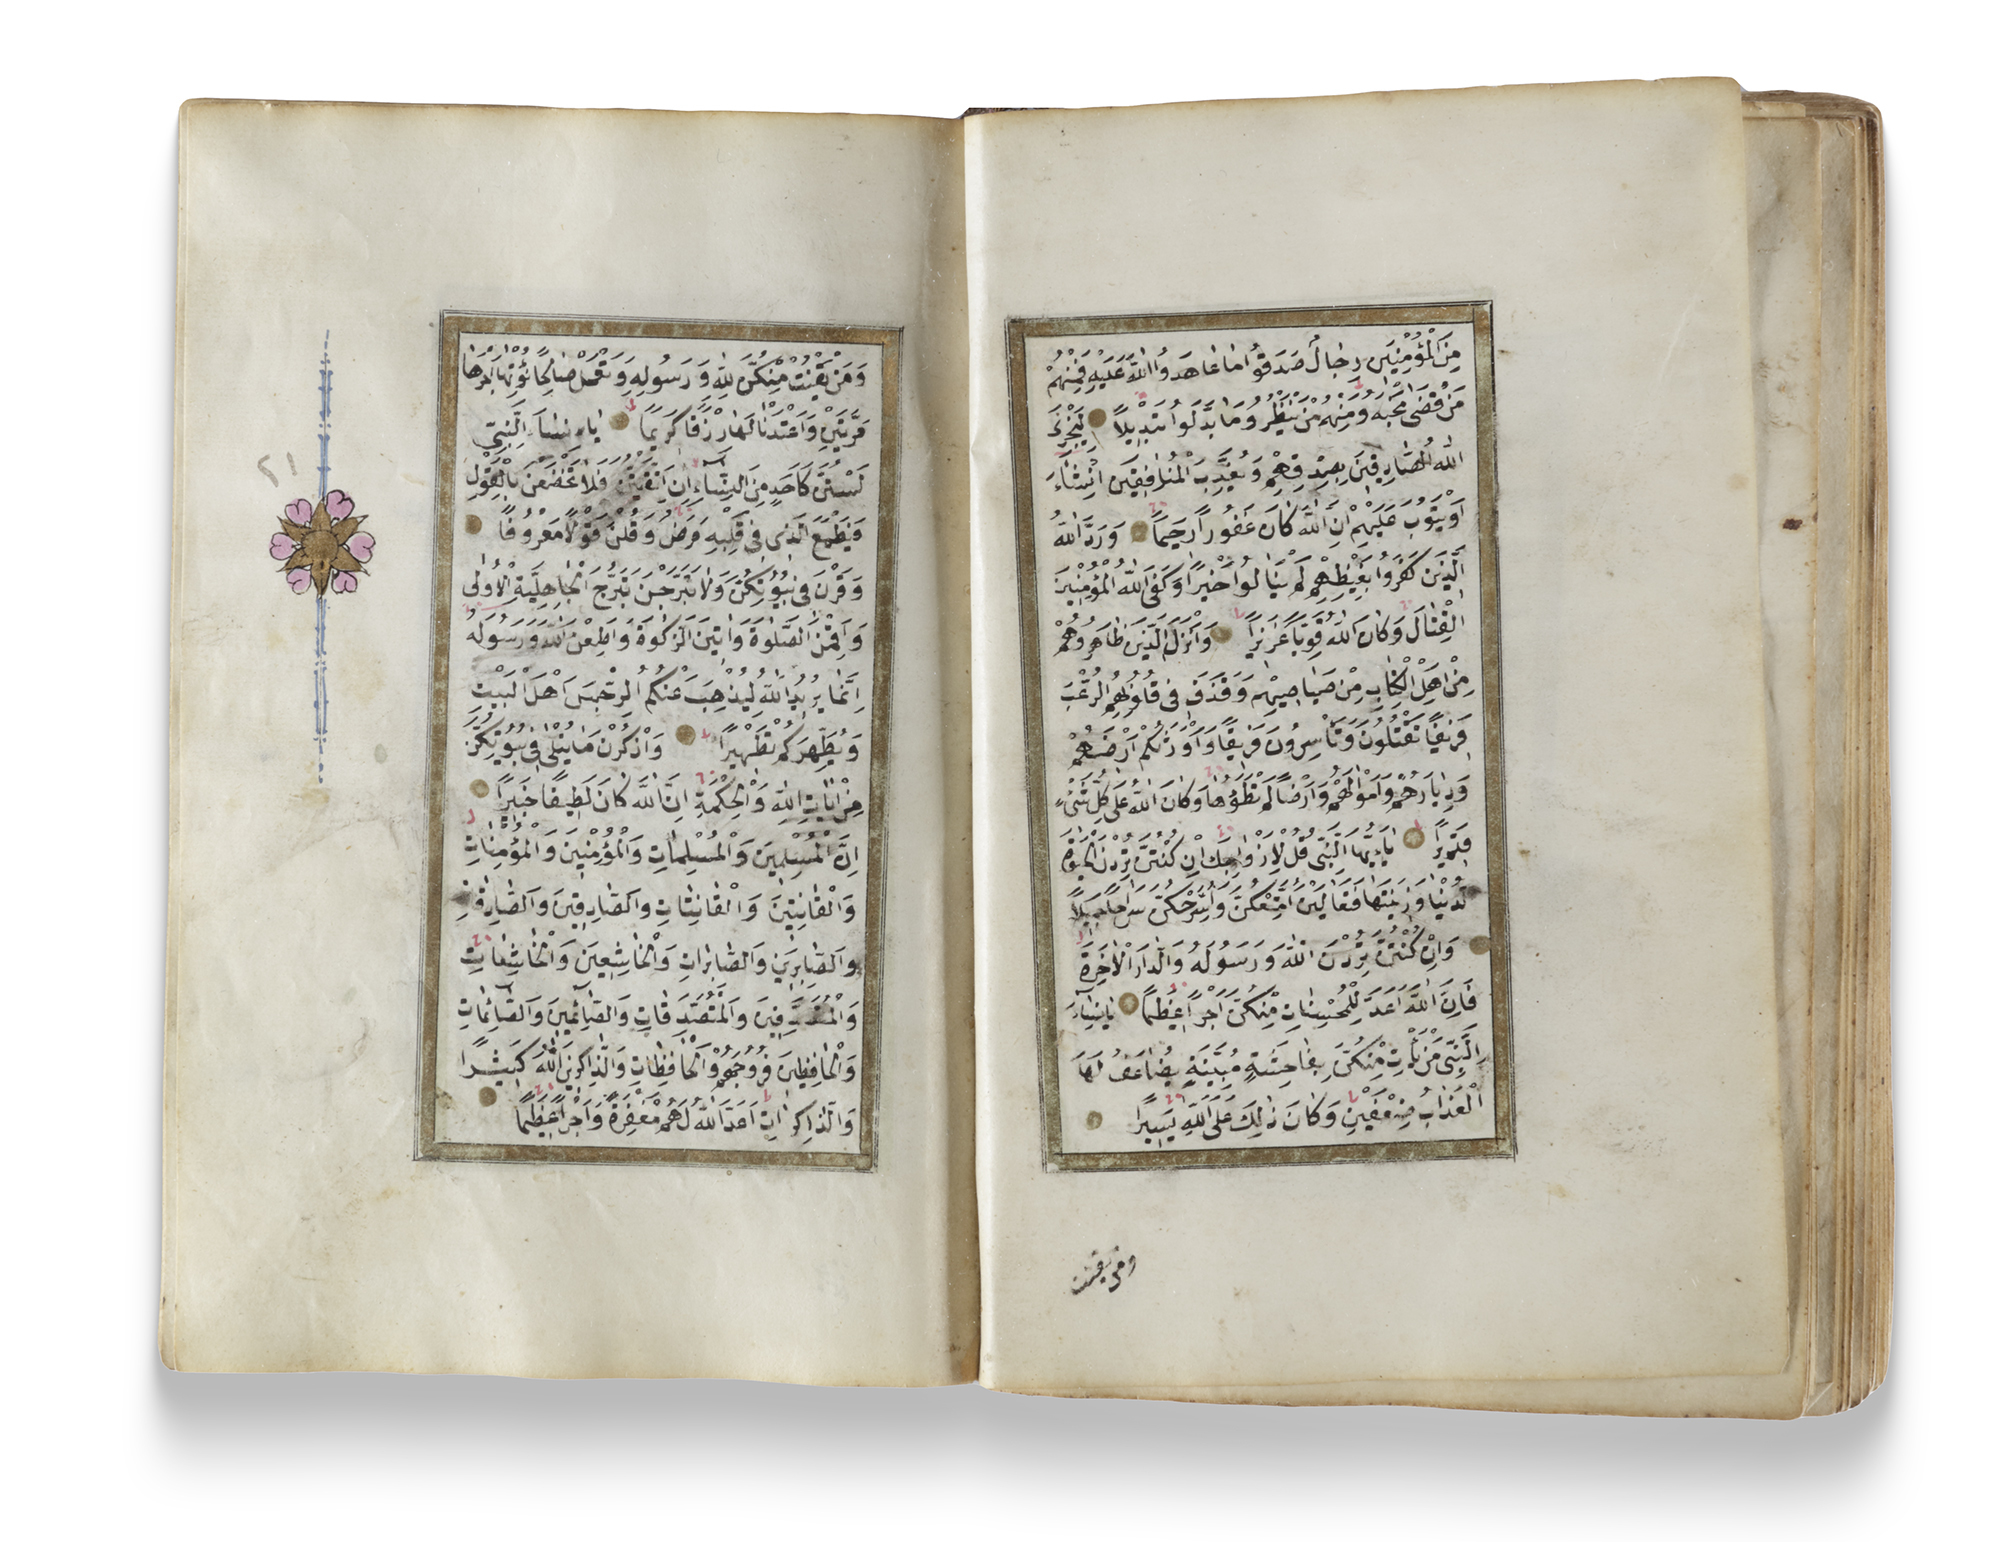 مِنَ الْمُؤْمِنِينَ رِجَالٌ صَدَقُوا مَا عَاهَدُوا اللّٰهَ عَلَيْهِ فَمِنْهُمْ
مَنْ قَضٰى نَحْبَهُ وَمِنْهُمْ مَنْ يَنْتَظِرُ وَمَا بَدَّلُوا تَبْدِيلًا لِيَجْزِيَ
اللّٰهُ الصَّادِقِينَ بِصِدْقِهِمْ وَيُعَذِّبَ الْمُنَافِقِينَ اِنْ شَاءَ
اَوْ يَتُوبَ عَلَيْهِمْ اِنَّ اللّٰهَ كَانَ غَفُورًا رَحِيمًا وَرَدَّ اللّٰهُ
الَّذِينَ كَفَرُوا بِغَيْظِهِمْ لَمْ يَنَالُوا خَيْرًا وَكَفَى اللّٰهُ الْمُؤْمِنِينَ
الْقِتَالَ وَكَانَ اللّٰهُ قَوِيًّا عَزِيزًا وَاَنْزَلَ الَّذِينَ ظَاهَرُوهُمْ
مِنْ اَهْلِ الْكِتَابِ مِنْ صَيَاصِيهِمْ وَقَذَفَ فِي قُلُوبِهِمُ الرُّعْبَ
فَرِيقًا تَقْتُلُونَ وَتَأْسِرُونَ فَرِيقًا وَاَوْرَثَكُمْ اَرْضَهُمْ
وَدِيَارَهُمْ وَاَمْوَالَهُمْ وَاَرْضًا لَمْ تَطَؤُهَا وَكَانَ اللّٰهُ عَلٰى كُلِّ شَيْءٍ
قَدِيرًا يَا اَيُّهَا النَّبِيُّ قُلْ لِاَزْوَاجِكَ اِنْ كُنْتُنَّ تُرِدْنَ الْحَيٰوةَ
الدُّنْيَا وَزِينَتَهَا فَتَعَالَيْنَ اُمَتِّعْكُنَّ وَاُسَرِّحْكُنَّ سَرَاحًا جَمِيلًا
وَاِنْ كُنْتُنَّ تُرِدْنَ اللّٰهَ وَرَسُولَهُ وَالدَّارَ الْاٰخِرَةَ
فَاِنَّ اللّٰهَ اَعَدَّ لِلْمُحْسِنَاتِ مِنْكُنَّ اَجْرًا عَظِيمًا يَا نِسَاءَ
النَّبِيِّ مَنْ يَأْتِ مِنْكُنَّ بِفَاحِشَةٍ مُبَيِّنَةٍ يُضَاعَفْ لَهَا
الْعَذَابُ ضِعْفَيْنِ وَكَانَ ذٰلِكَ عَلَى اللّٰهِ يَسِيرًا
ومن يقنت
وَمَنْ يَقْنُتْ مِنْكُنَّ لِلّٰهِ وَرَسُولِهِ وَتَعْمَلْ صَالِحًا نُؤْتِهَا اَجْرَهَا
مَرَّتَيْنِ وَاَعْتَدْنَا لَهَا رِزْقًا كَرِيمًا يَا نِسَاءَ النَّبِيِّ
لَسْتُنَّ كَاَحَدٍ مِنَ النِّسَاءِ اِنِ اتَّقَيْتُنَّ فَلَا تَخْضَعْنَ بِالْقَوْلِ
فَيَطْمَعَ الَّذِي فِي قَلْبِهِ مَرَضٌ وَقُلْنَ قَوْلًا مَعْرُوفًا
وَقَرْنَ فِي بُيُوتِكُنَّ وَلَا تَبَرَّجْنَ تَبَرُّجَ الْجَاهِلِيَّةِ الْاُولٰى
وَاَقِمْنَ الصَّلٰوةَ وَاٰتِينَ الزَّكٰوةَ وَاَطِعْنَ اللّٰهَ وَرَسُولَهُ
اِنَّمَا يُرِيدُ اللّٰهُ لِيُذْهِبَ عَنْكُمُ الرِّجْسَ اَهْلَ الْبَيْتِ
وَيُطَهِّرَكُمْ تَطْهِيرًا وَاذْكُرْنَ مَا يُتْلٰى فِي بُيُوتِكُنَّ
مِنْ اٰيَاتِ اللّٰهِ وَالْحِكْمَةِ اِنَّ اللّٰهَ كَانَ لَطِيفًا خَبِيرًا
اِنَّ الْمُسْلِمِينَ وَالْمُسْلِمَاتِ وَالْمُؤْمِنِينَ وَالْمُؤْمِنَاتِ
وَالْقَانِتِينَ وَالْقَانِتَاتِ وَالصَّادِقِينَ وَالصَّادِقَاتِ
وَالصَّابِرِينَ وَالصَّابِرَاتِ وَالْخَاشِعِينَ وَالْخَاشِعَاتِ
وَالْمُتَصَدِّقِينَ وَالْمُتَصَدِّقَاتِ وَالصَّائِمِينَ وَالصَّائِمَاتِ
وَالْحَافِظِينَ فُرُوجَهُمْ وَالْحَافِظَاتِ وَالذَّاكِرِينَ اللّٰهَ كَثِيرًا
وَالذَّاكِرَاتِ اَعَدَّ اللّٰهُ لَهُمْ مَغْفِرَةً وَاَجْرًا عَظِيمًا
٢١